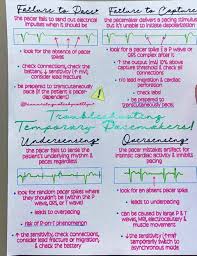 Failure to Pace:
the pacer fails to send out electrical
impulses when it should be
• look for the absence of pacer
spikes
• check connections, check the
battery, ↓ sensitivity (↑ mV),
consider lead fracture
• be prepared to transcutaneously
pace (if the patient is pacer
dependent)
Failure to Capture:
the pacemaker delivers a pacing stimulus
but it's unable to initiate depolarization
• look for pacer spikes  P wave or
QRS complex after it
• ↑ the output (mA) 10% above
capture threshold & check all
connections
• r/o lead migration & cardiac
perforation
• check labs!
• be prepared to
transcutaneously pace!
Troubleshooting
Temporary Pacemakers!
Undersensing:
the pacer fails to detect the
patient's underlying rhythm &
paces regardless
• look for random pacer spikes where
they shouldn't be (within the P
wave, QRS, or T wave)
• leads to overpacing
• risk of R-on-T phenomenon
• ↑ the sensitivity, check connections,
consider lead fracture or migration,
& check the battery
Oversensing:
the pacer mistakes artifact for
intrinsic cardiac activity & inhibits
pacing
• look for an absent pacer spike
• leads to underpacing
• can be caused by large P & T
waves, MRI, electrocautery, &
muscle movements
• ↓ the sensitivity (↑ mV)
temporarily switch to
asynchronous mode